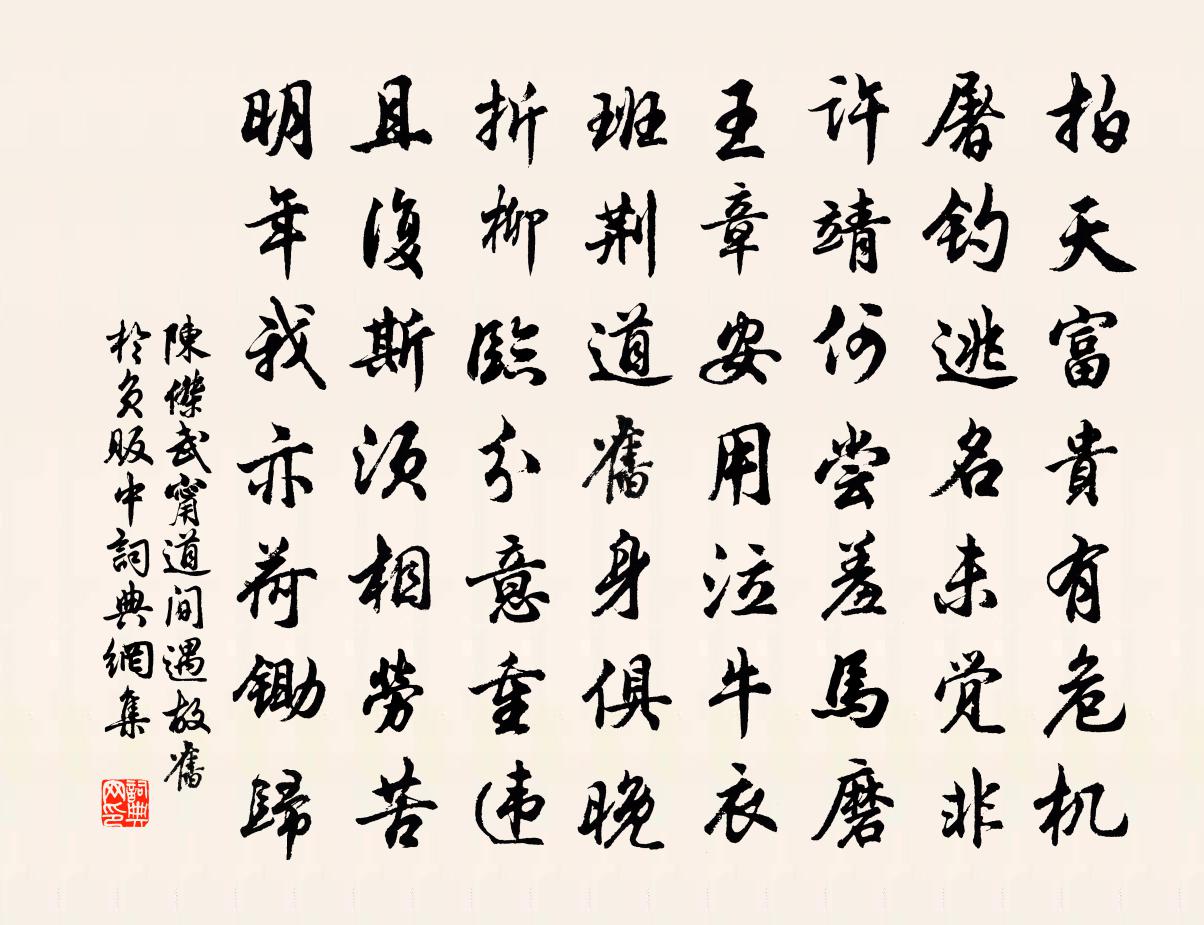 拍天富貴有危机
屠钓逃名未觉非
许靖何尝羞馬磨
王章安用泣牛衣
班荆道舊身俱晚
折柳臨分意重违
且復斯须相勞苦
明年我亦荷锄歸
陳傑武甯道间遇故舊
於负販中詞典網集
詞典